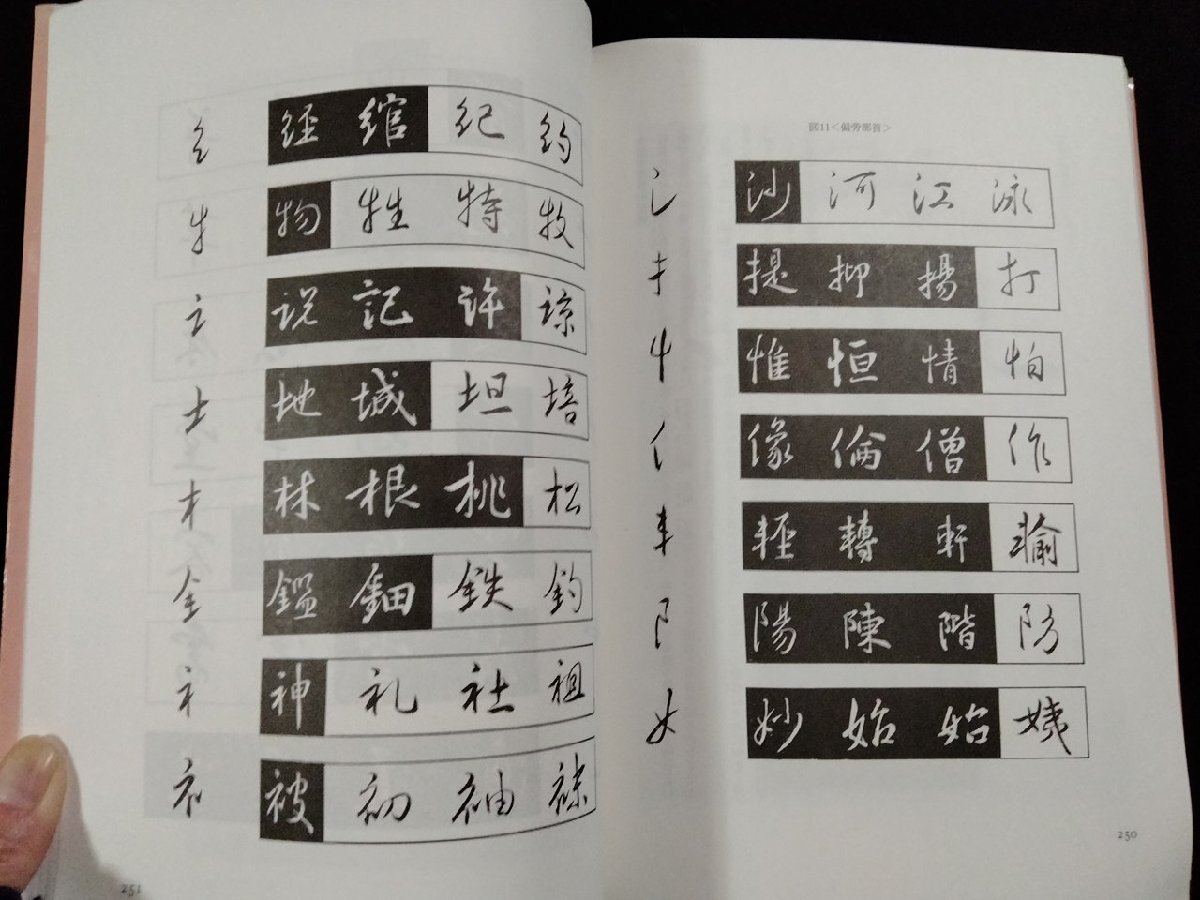 図11<偏旁部首>
氵 沙 河 江 泳
扌 提 抑 揚 打
忄 惟 恒 情 怕
亻 像 倫 僧 作
車 軽 轉 軒 輸
阝 陽 陳 階 防
女 妙 姑 始 姨
250
糹 経 綰 紀 約
牜 物 牲 特 牧
訁 説 記 許 諒
土 地 城 坦 培
木 林 根 桃 松
金 鈿 鉄 釣
礻 神 礼 社 祖
衤 被 初 袖
251